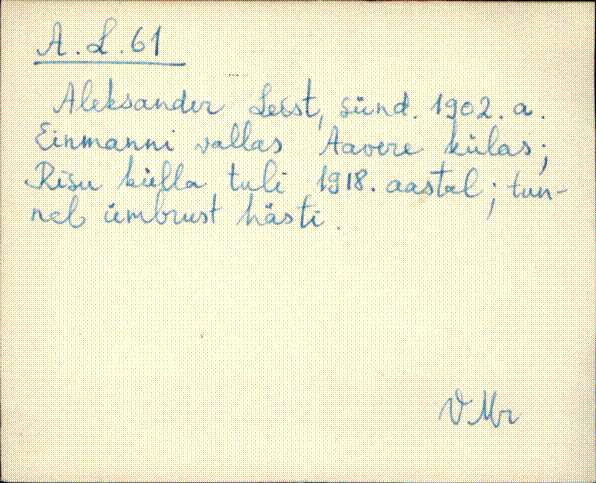 A. L. 61
Aleksander Leist, sünd. 1902. a.
Einmanni vallas Aavere külas;
Risu külla tuli 1918. aastal; tun-
neb ümbrust hästi.
VMr